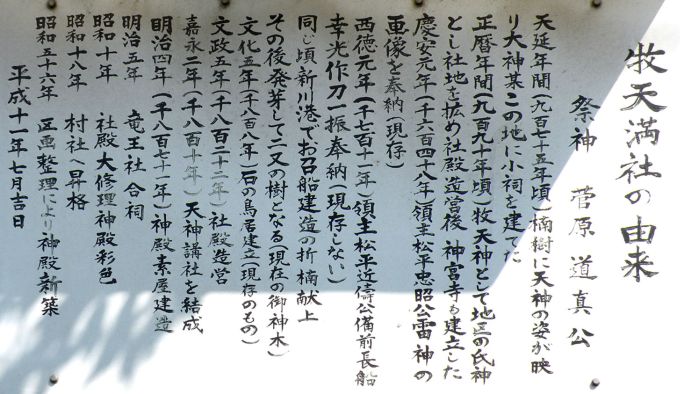 牧天満社の由来
祭神 菅原道真公
天延年間(九百七十五年頃)楠樹に天神の姿が映
り大神某この地に小祠を建てた
正暦年間(九百九十年頃)牧天神として地区の氏神
とし社地を拡め社殿造営後 神宮寺も建立した
慶安元年(千六百四十八年)領主松平忠昭公雷神の
画像を奉納(現存)
西徳元年(千七百十一年)領主松平近儔公備前長船
幸光作刀一振奉納(現存しない)
同じ頃新川港でお召船建造の折楠献上
その後発芽して二又の樹となる(現在の御神木)
文化五年(千八百八年)石の鳥居建立(現存のもの)
文政五年(千八百二十二年)社殿造営
嘉永二年(千八百四十年)天神講社を結成
明治四年(千八百七十一年)神殿素屋建造
明治五年 竜王社合祠
昭和十年 社殿大修理神殿彩色
昭和十八年 村社へ昇格
昭和五十六年 区画整理により神殿新築
平成十一年七月吉日